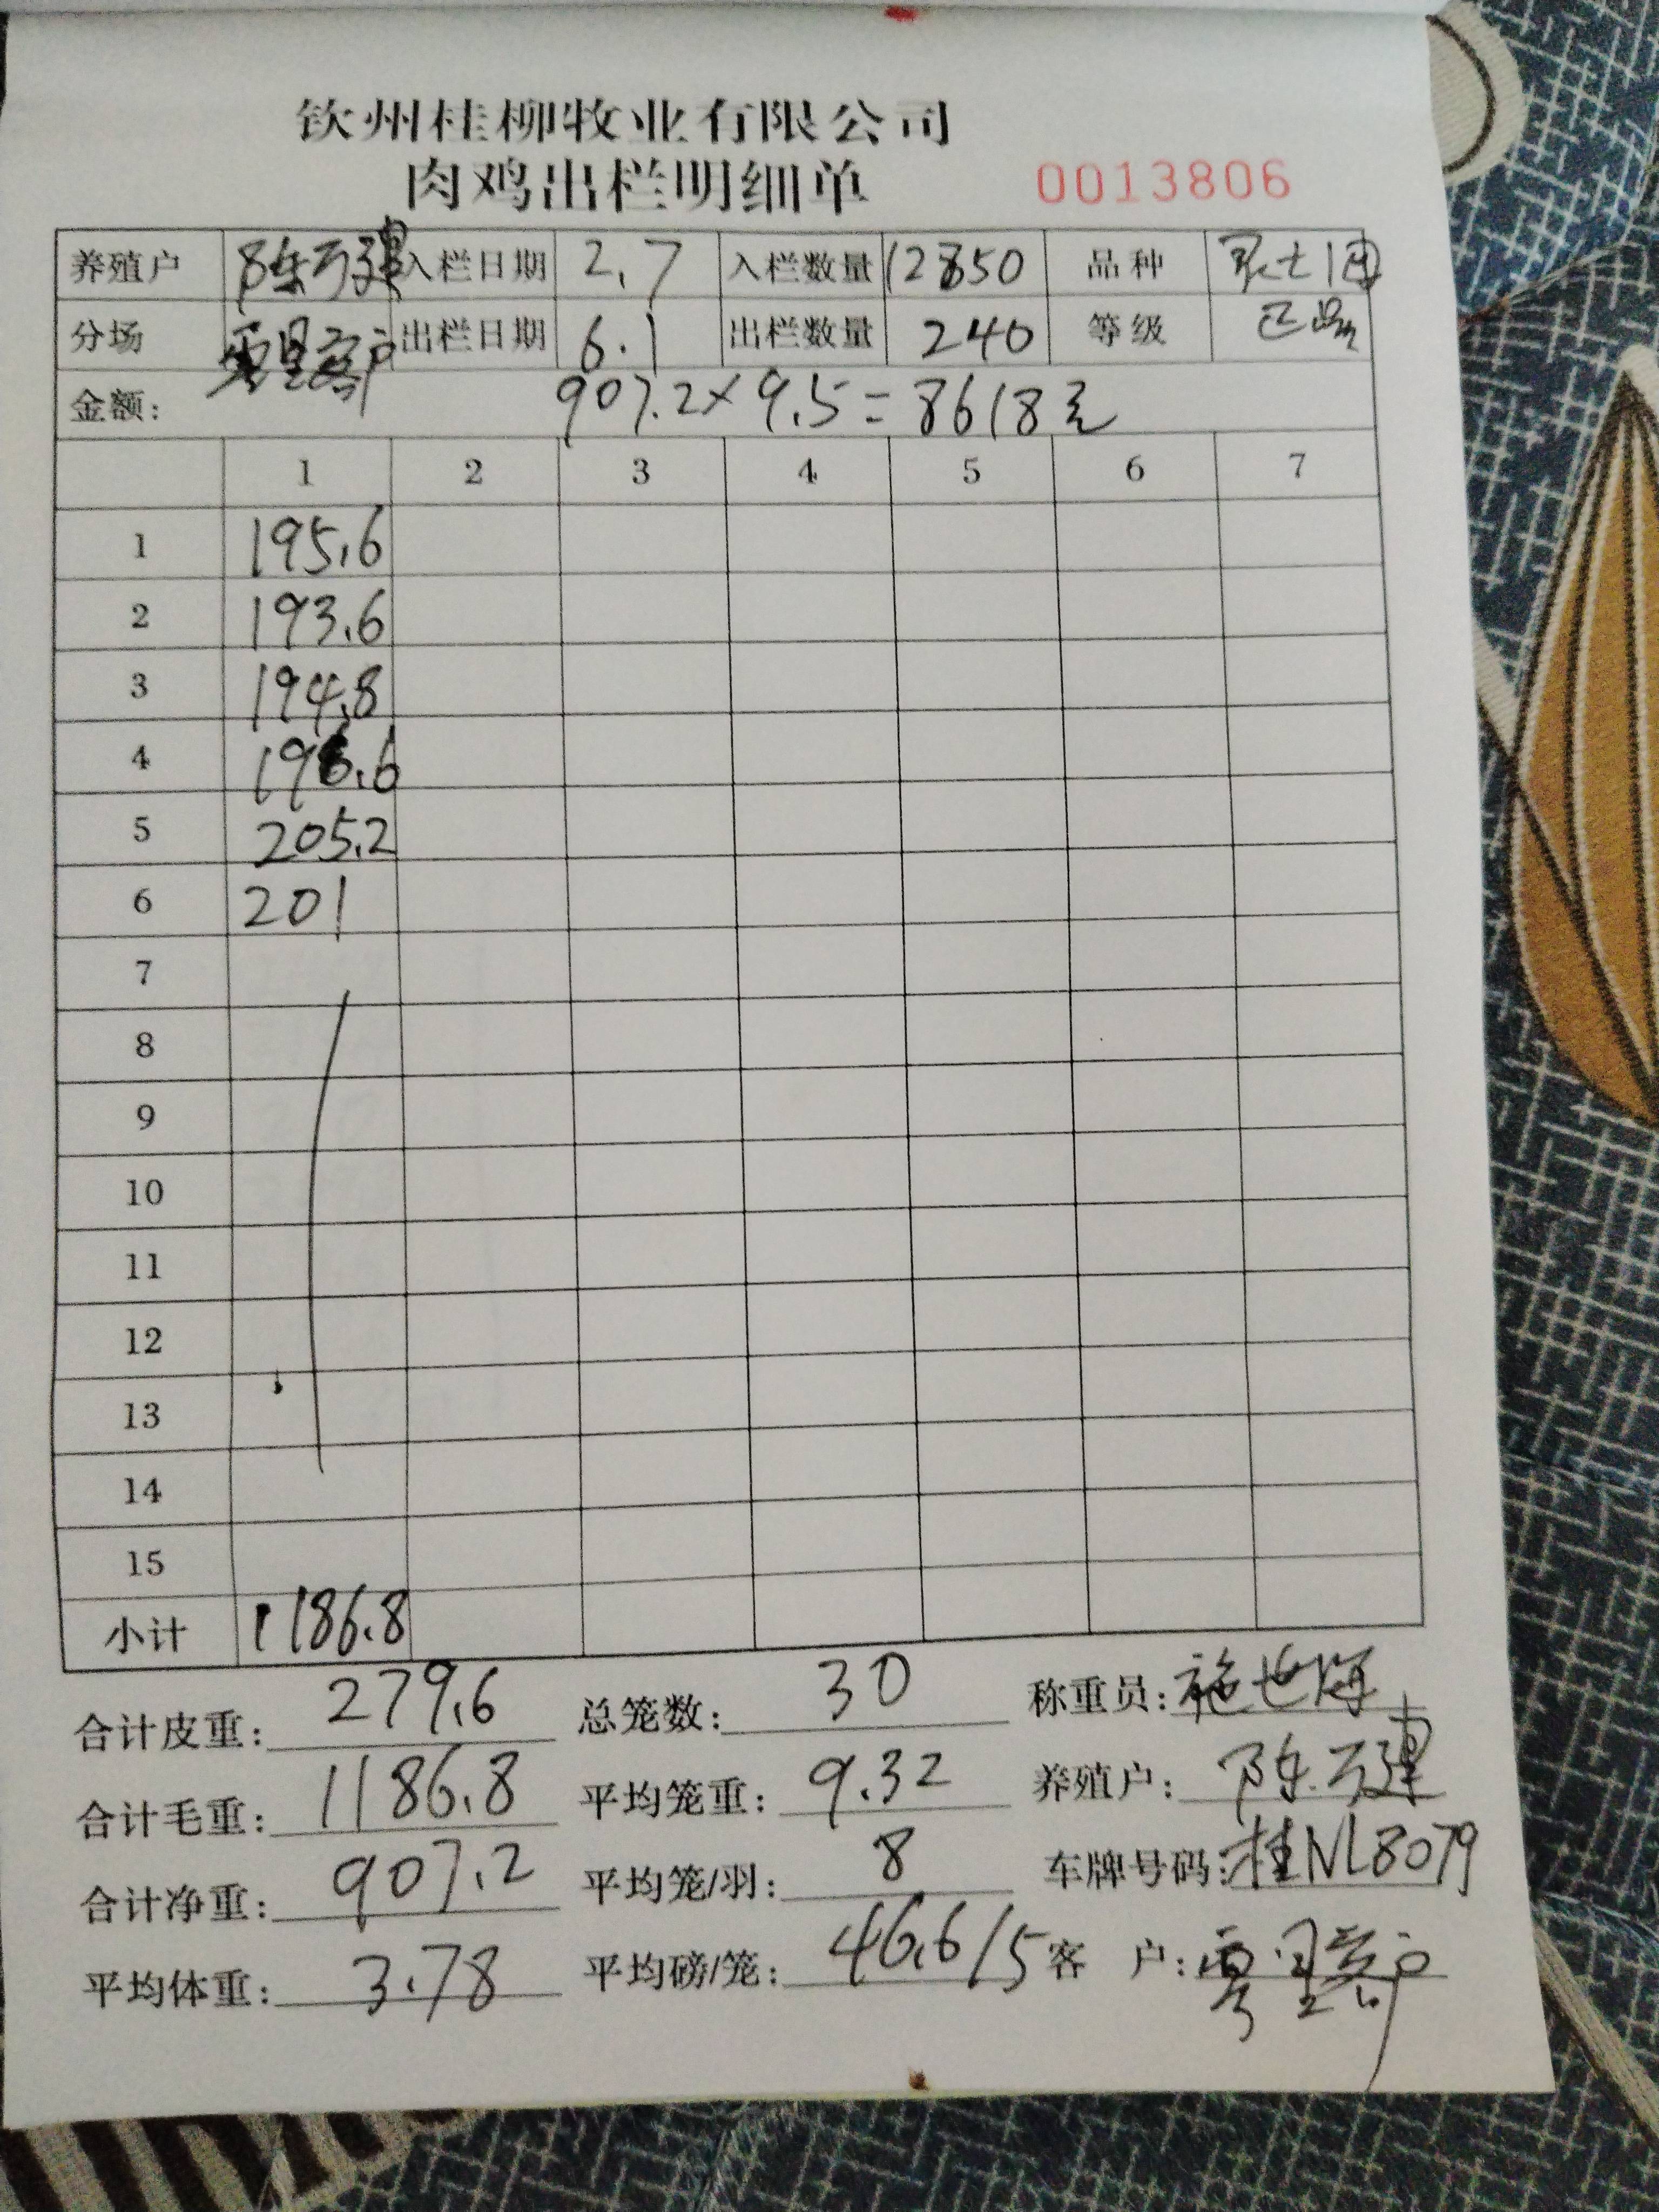 钦州桂柳牧业有限公司
肉鸡出栏明细单 0013806
养殖户 陈万建 入栏日期 2.7 入栏数量 12850 品种
分场 出栏日期 6.1 出栏数量 240 等级 正品
金额: 907.2×9.5=8618元
1 2 3 4 5 6 7
1 195.6
2 193.6
3 194.8
4 196.6
5 205.2
6 201
7
8
9
10
11
12
13
14
15
小计 1186.8
合计皮重: 279.6 总笼数: 30 称重员: 施世海
合计毛重: 1186.8 平均笼重: 9.32 养殖户: 陈万建
合计净重: 907.2 平均笼/羽: 8 车牌号码: 桂NL8079
平均体重: 3.78 平均磅/笼: 46.6/5 客 户: